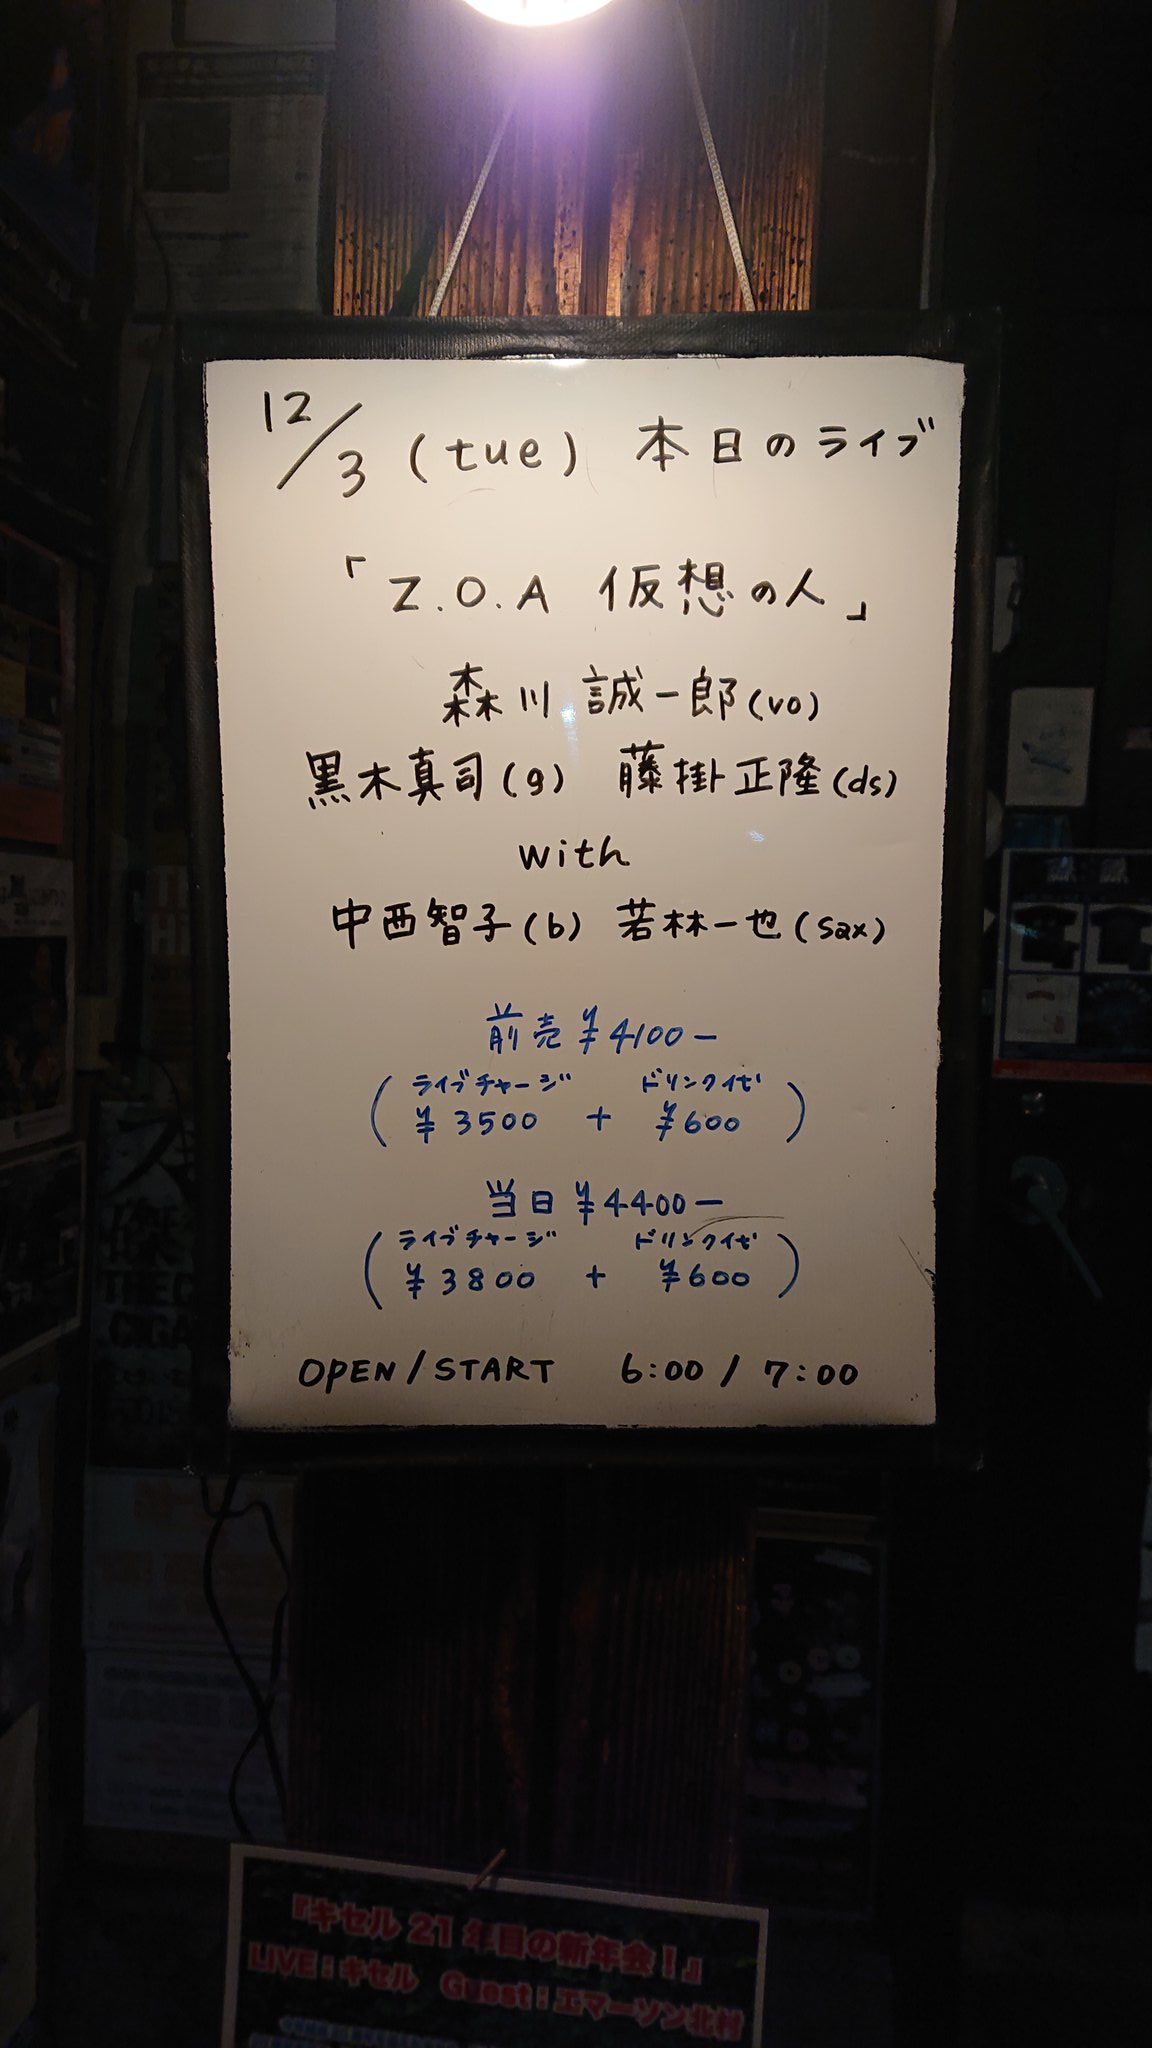 12/3 (tue) 本日のライブ
「Z.O.A 仮想の人」
森川 誠一郎(vo)
黒木真司(g) 藤掛正隆(ds)
with
中西智子(b) 若林一也(sax)
前売 ¥4100-
(ライブチャージ ¥3500 + ドリンク代 ¥600)
当日 ¥4400-
(ライブチャージ ¥3800 + ドリンク代 ¥600)
OPEN/START 6:00 / 7:00
『キセル 21年目の新年会!』
LIVE:キセル Guest:エマーソン北村